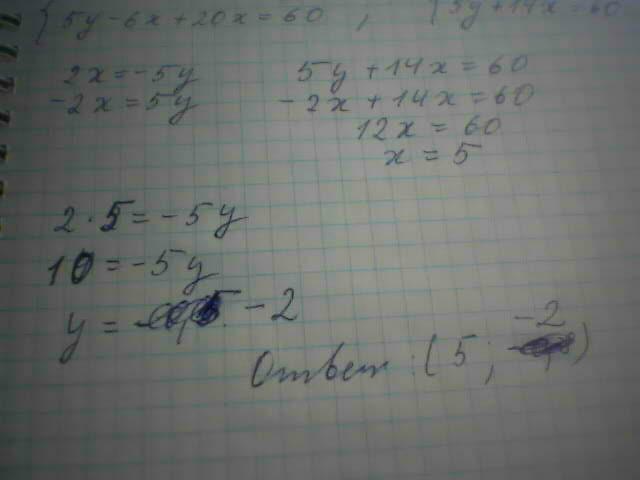 {5y-6x+20x=60 , {5y+14x=60
2x=-5y
-2x=5y
5y+14x=60
-2x+14x=60
12x=60
x=5
2·5=-5y
10=-5y
y= -2
Ответ:(5; -2)